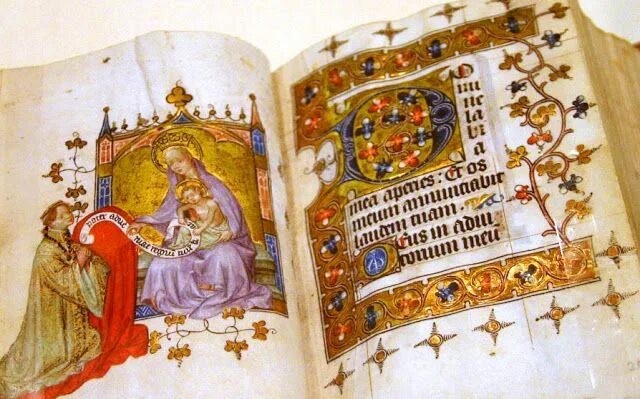 Do
mine
labi
a
mea aperies: Et os
meum annunciabit
laudem tuam.
Deus in adiu
torium meu